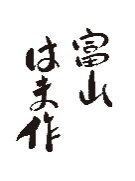 富山
はま作